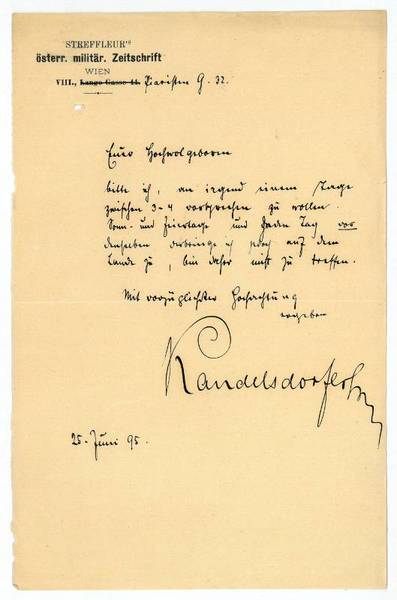 STREFFLEUR'S
österr. militär. Zeitschrift
WIEN
VIII., Lange Gasse 44. Piaristen G. 32.
Euer Hochwolgeboren
bitte ich, an irgend einem Tage
zwischen 3-4 vorsprechen zu wollen.
Sonn- und Feiertage und jeden Tag vor
denselben verbringe ich jedoch auf dem
Lande zu, bin daher nicht zu treffen.
Mit vorzüglichster Hochachtung
ergeben
Kandelsdorfer
25. Juni 95.